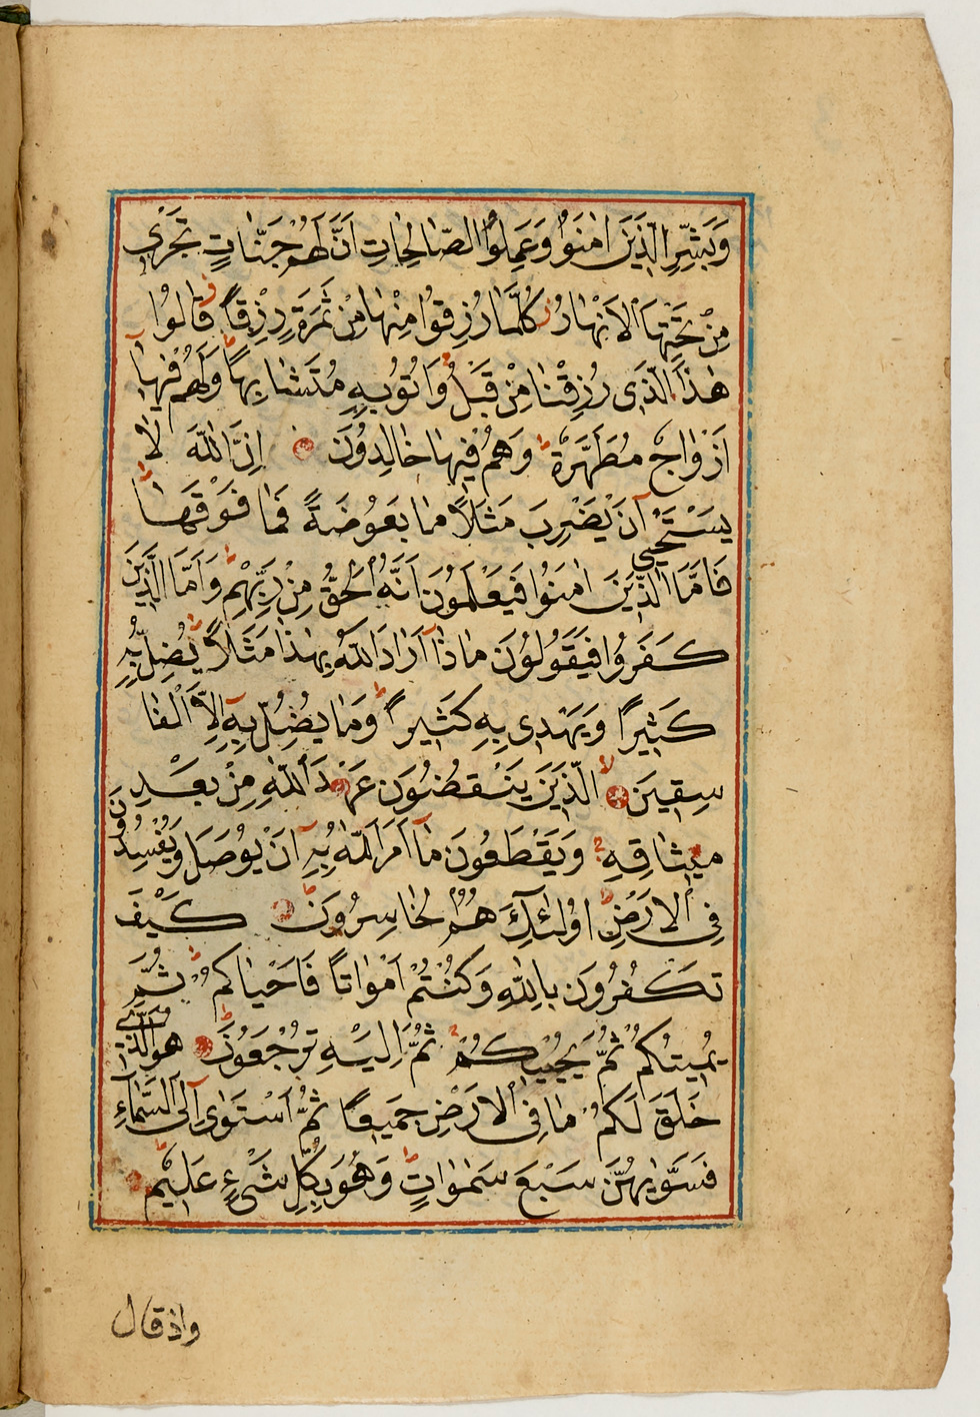 وَبَشِّرِ الَّذِينَ اٰمَنُوا وَعَمِلُوا الصَّالِحَاتِ اَنَّ لَهُمْ جَنَّاتٍ تَجْرِي
مِنْ تَحْتِهَا الْاَنْهَارُ كُلَّمَا رُزِقُوا مِنْهَا مِنْ ثَمَرَةٍ رِزْقًا قَالُوا
هٰذَا الَّذِى رُزِقْنَا مِنْ قَبْلُ وَاُتُوا بِهِ مُتَشَابِهًا وَلَهُمْ فِيهَا
اَزْوَاجٌ مُطَهَّرَةٌ وَهُمْ فِيهَا خَالِدُونَ اِنَّ اللّٰهَ لَا
يَسْتَحْيِي اَنْ يَضْرِبَ مَثَلًا مَا بَعُوضَةً فَمَا فَوْقَهَا
فَاَمَّا الَّذِينَ اٰمَنُوا فَيَعْلَمُونَ اَنَّهُ الْحَقُّ مِنْ رَبِّهِمْ وَاَمَّا الَّذِينَ
كَفَرُوا فَيَقُولُونَ مَاذَا اَرَادَ اللّٰهُ بِهٰذَا مَثَلًا يُضِلُّ بِهِ
كَثِيرًا وَيَهْدِى بِهِ كَثِيرًا وَمَا يُضِلُّ بِهِ اِلَّا الْفَا
سِقِينَ الَّذِينَ يَنْقُضُونَ عَهْدَ اللّٰهِ مِنْ بَعْدِ
مِيثَاقِهِ وَيَقْطَعُونَ مَا اَمَرَ اللّٰهُ بِهِ اَنْ يُوصَلَ وَيُفْسِدُونَ
فِى الْاَرْضِ اُولٰئِكَ هُمُ الْخَاسِرُونَ كَيْفَ
تَكْفُرُونَ بِاللّٰهِ وَكُنْتُمْ اَمْوَاتًا فَاَحْيَاكُمْ ثُمَّ
يُمِيتُكُمْ ثُمَّ يُحْيِيكُمْ ثُمَّ اِلَيْهِ تُرْجَعُونَ هُوَ الَّذِى
خَلَقَ لَكُمْ مَا فِى الْاَرْضِ جَمِيعًا ثُمَّ اسْتَوٰى اِلَى السَّمَاءِ
فَسَوّٰيهُنَّ سَبْعَ سَمٰوَاتٍ وَهُوَ بِكُلِّ شَىْءٍ عَلِيمٌ
واذ قال